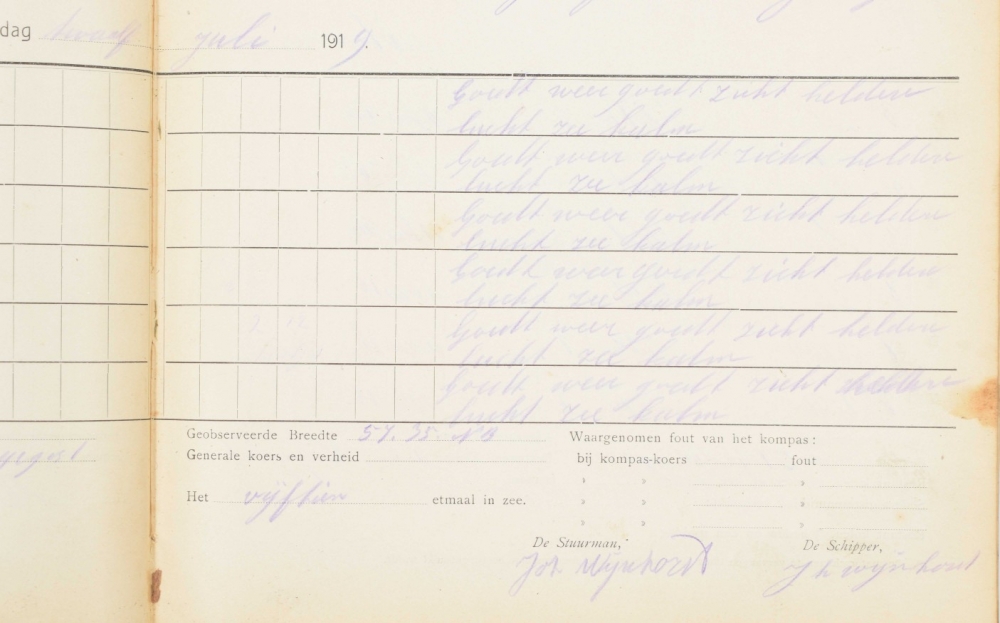 dag twaalf juli 1919.
Goedt weer goedt zicht helder
lucht zee kalm
Goedt weer goedt zicht helder
lucht zee kalm
Goedt weer goedt zicht helder
lucht zee kalm
Goedt weer goedt zicht helder
lucht zee kalm
Goedt weer goedt zicht helder
lucht zee kalm
Goedt weer goedt zicht helder
lucht zee kalm
Geobserveerde Breedte 57.35 NB
Waargenomen fout van het kompas:
Generale koers en verheid
bij kompas-koers fout
" " "
Het vijftien etmaal in zee.
" " "
" " "
De Stuurman,
De Schipper,
Joh Wijnhorst